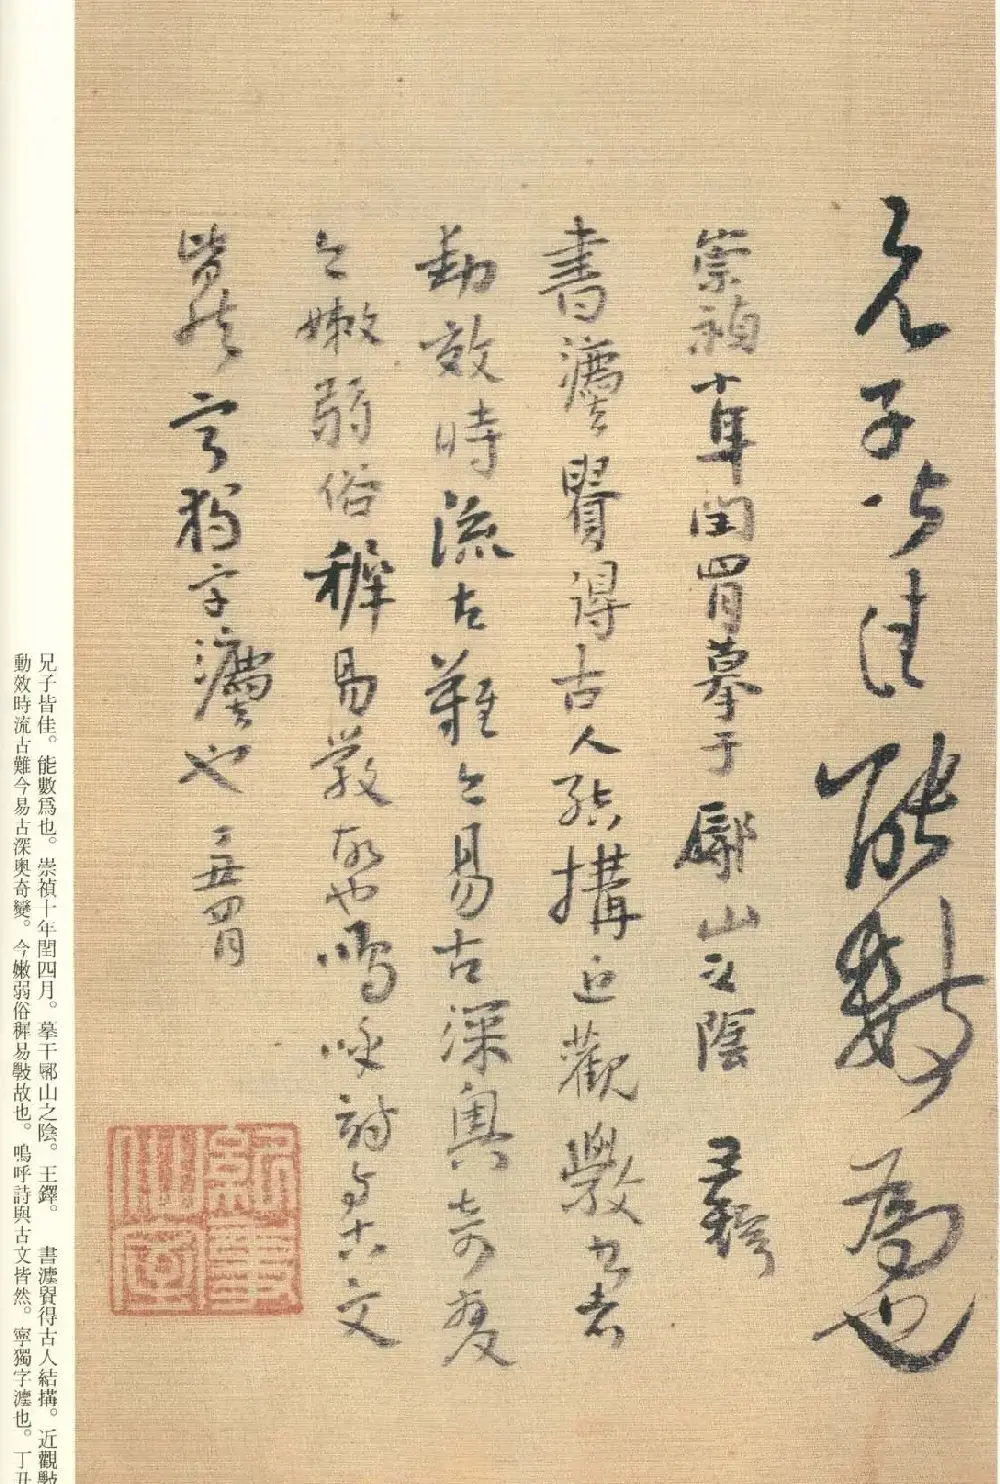 兄子皆佳能數爲也
崇禎十年閏四月摹于郿山之陰 王鐸
書瀍贤得古人結搆近觀斅書者
動效時流古難今易古深奧奇變
今嫩弱俗穉易斅故也嗚呼詩與古文
皆然寧獨字瀍也 丁丑四月
兄子皆佳。能數爲也。崇禎十年閏四月。摹于郿山之陰。王鐸。 書瀍得古人結搆。近觀斅
動效時流古難今易古深奧奇變。今嫩弱俗穉易斅故也。嗚呼詩與古文皆然。寧獨字瀍也。丁丑